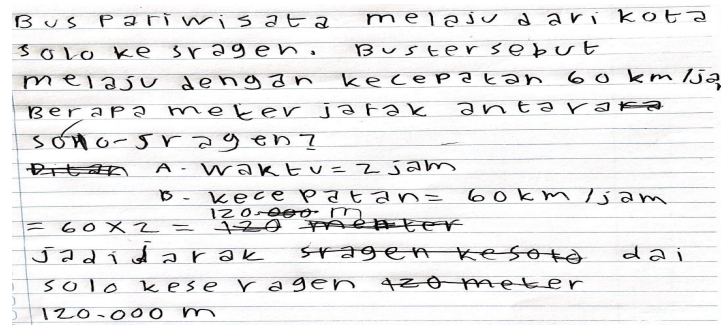 Bus Pariwisata melaju dari kota
solo ke sragen. Bus tersebut
melaju dengan kecepatan 60 km/ja
Berapa meter jarak antara
solo-sragen?
A. Waktu = 2 jam
B. kecepatan = 60 km/jam
= 60 x 2 = 120.000 m
jadi jarak sragen ke solo dai
solo kese ragen 120 meter
120.000 m